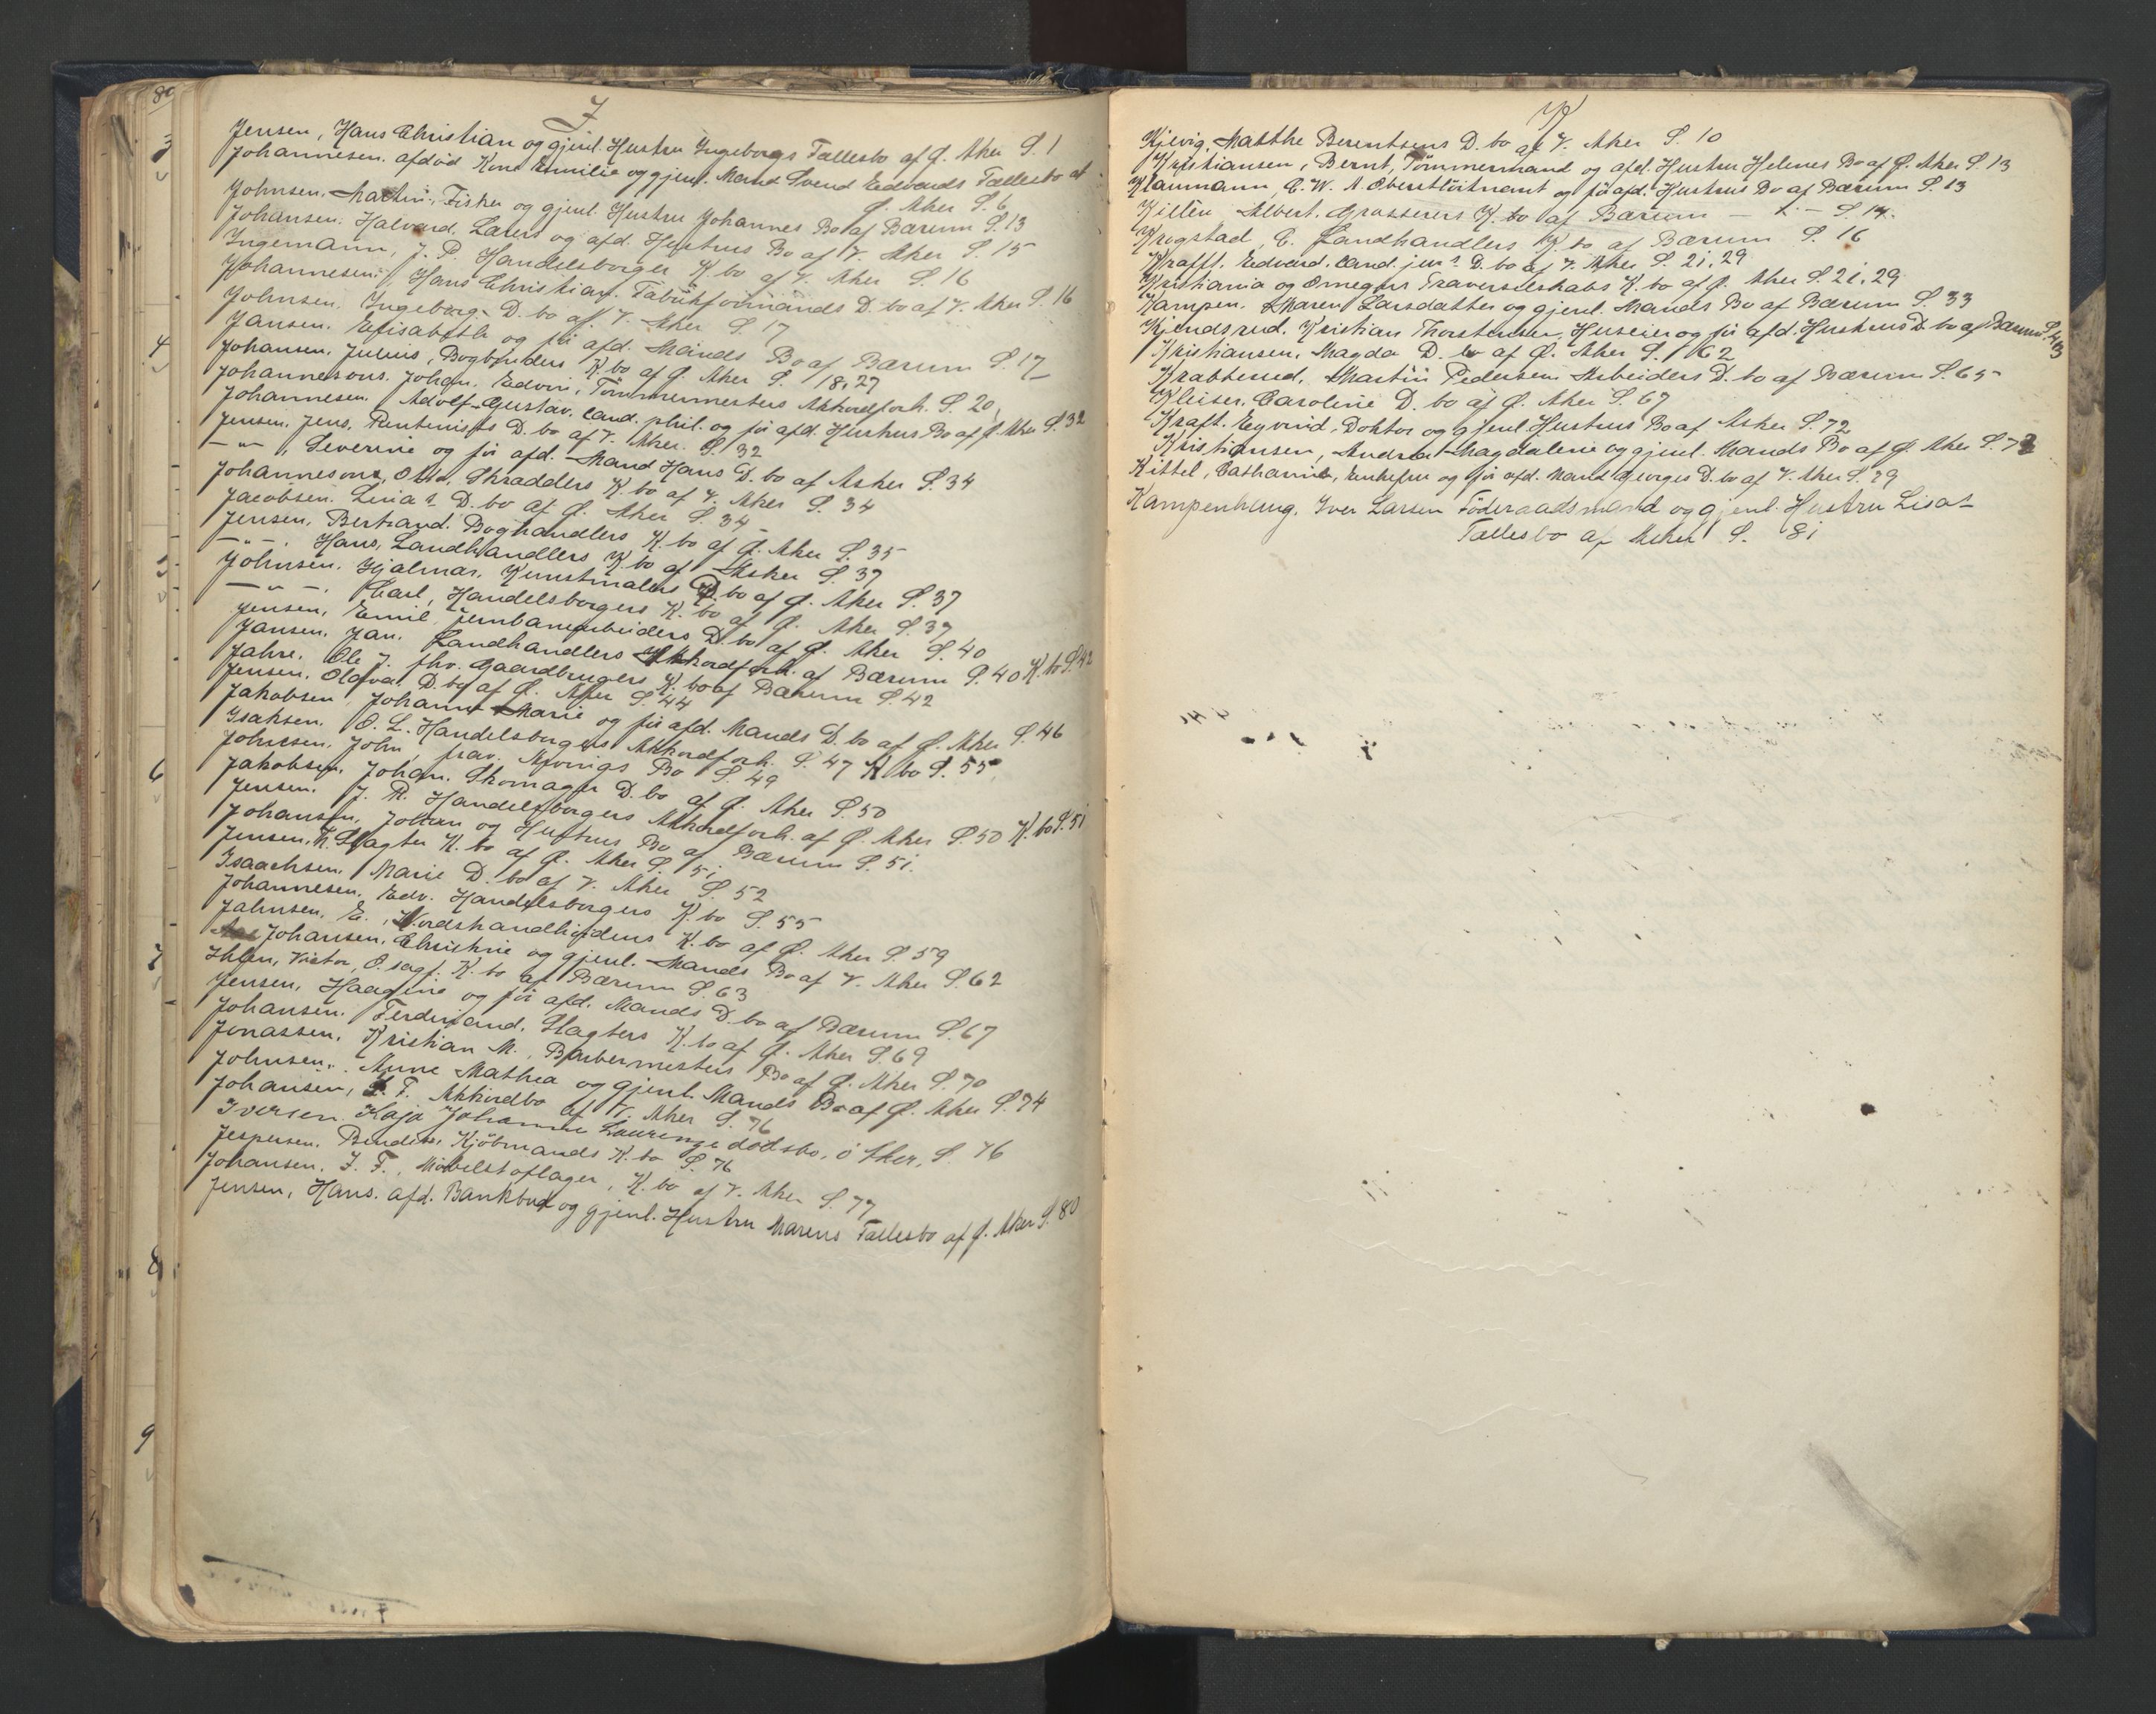 J
Jensen, Hans Christian og gjenl. Hustru Ingeborgs Fællesbo af Ø. Aker S. 1
Johannesen. afdød Kone Emilie og gjenl. Mand Svend Edvards Fællesbo af
Ø. Aker S. 6
Johnsen. Martin. Fisker og gjenl. Hustru Johannes Bo af Bærum S. 13
Johansen. Halvard. Lærers og afd. Hustrus Bo af V. Aker S. 15
Ingemann, J. P. Handelsborger K. bo af V. Aker S. 16
Johannesen. Hans Christian. Fabrikformands D. bo af V. Aker S. 16
Johnsen. Ingeborg. D. bo af V. Aker S. 17
Jansen. Elisabeth og før afd. Mands Bo af Bærum S. 17
Johansen, Julius, Bogbinders K. bo af Ø. Aker S. 18, 27
Johannesens. Johan. Edvin, Tømmermesters Akkordforh. S. 20
Johannesen. Adolf-Gustav, Cand. phil. og før afd. Hustrus Bo af Ø. Aker S. 32
Jensen. Jens, Rentenists D. bo af V. Aker. S. 32
— " —, Severine og før afd. Mand Hans D. bo af Asker S. 34
Johannesens, Otto, Skrædders K. bo af V. Aker S. 34
Jacobsen. Linas D. bo af Ø. Aker S. 34
Jensen, Bertrand. Boghandlers K. bo af Ø. Aker S. 35
— " —. Hans, Landhandlers K. bo af Asker S. 37
Johnsen. Hjalmar. Kunstmalers D. bo af Ø. Aker S. 37
— " —. Carl, Handelsborgers K. bo af Ø. Aker S. 37
Jensen, Emil Jernbanearbeiders D. bo af Ø. Aker S. 40
Jansen. Jan. Landhandlers Akkordforh. af Bærum S. 40 K. bo S. 42
Jahre, Ole J. fhv. Gaardbrugers K. bo af Bærum S. 42
Jensen. Olava. D. bo af Ø. Aker S. 44
Jakobsen, Johanne Marie og før afd. Mands D. bo af Ø. Aker S. 46
Isaksen. O. L. Handelsborgers Akkordforh. S. 47 K. bo S. 55
Johnsen. John, frav. Arvings Bo S. 49
Jakobsen, Johan. Skomager D. bo af Ø. Aker S. 50
Jensen. J. R. Handelsborgers Akkordforh. af Ø. Aker S. 50 K. bo S. 51
Johansen, Johan og Hustrus Bo af Bærum S. 51.
Jensen, K. Slagter K. bo af Ø. Aker S. 51
Isaachsen, Marie D. bo af V. Aker S. 52
Johannesen. Edv. Handelsborgers K. bo S. 55
Jahnsen. E., K. bo af Ø. Aker S. 59
Johansen, Christine og gjenl. Mands Bo af V. Aker S. 62
Ihlen, Victor, O. sagf. K. bo af Bærum S. 63
Jensen, Haagine og før afd. Mands D. bo af Bærum S. 67
Johansen. Ferdinand. Slagters K. bo af Ø. Aker S. 69
Jonassen. Kristian M., Barbermesters Bo af Ø. Aker S. 70
Johnsen. Anne Mathea og gjenl. Mands Bo af Ø. Aker S. 74
Johansen, F. Akkordbo af V. Aker S. 76
Iversen Kaja Johanne Laurenze dødsbo, ø Aker, S. 76
Jespersen. Kjøbmands K. bo S. 76
Johansen. J. F., Møbelstoflager, K. bo af V. Aker S. 77
Jensen, Hans. afd. Bankbud og gjenl. Hustru Marens Fællesbo af Ø. Aker S. 80
K
Kjevig, Matthe Berentsens D. bo af V. Aker S. 10
Kristiansen, Bernt, Tømmermand og afd. Hustru Helenes Bo af Ø. Aker S. 13
Klaumann, C. W. A. Oberstløitnant og før afd. Hustrus Bo af Bærum S. 13
Killén Albert. Grosserers K. bo af Bærum — " — S. 14.
Krogstad, C. Landhandlers K. bo af Bærum S. 16
Krafft. Edvard. Cand. jurs D. bo af V. Aker S. 21, 29
Kristiania og Omegns Traverselskabs K. bo af Ø. Aker S. 21, 29
Kampen. Maren Larsdatter og gjenl. Mands Bo af Bærum S. 33
Kjendsrud. Kristian Thorstensen, Huseier og før afd. Hustrus D. bo af Bærum S. 43
Kristiansen, Magda D. bo af Ø. Aker S. 62
Krabberud. Martin Pedersen Arbeiders D. bo af Bærum S. 65
Kleiser. Caroline D. bo af Ø. Aker S. 67
Kraft. Eyvind, Doktor og gjenl. Hustrus Bo af Asker S. 72
Kristiansen, Andrea Magdalene og gjenl. Mands Bo af Ø. Aker S. 78
Kittel, Cathanie, Enkefru og før afd. Mand Georges D. bo af V. Aker S. 79
Kampenhaug. Iver Larsen Føderaadsmand og gjenl. Hustru Lisas
Fællesbo af Asker S. 81